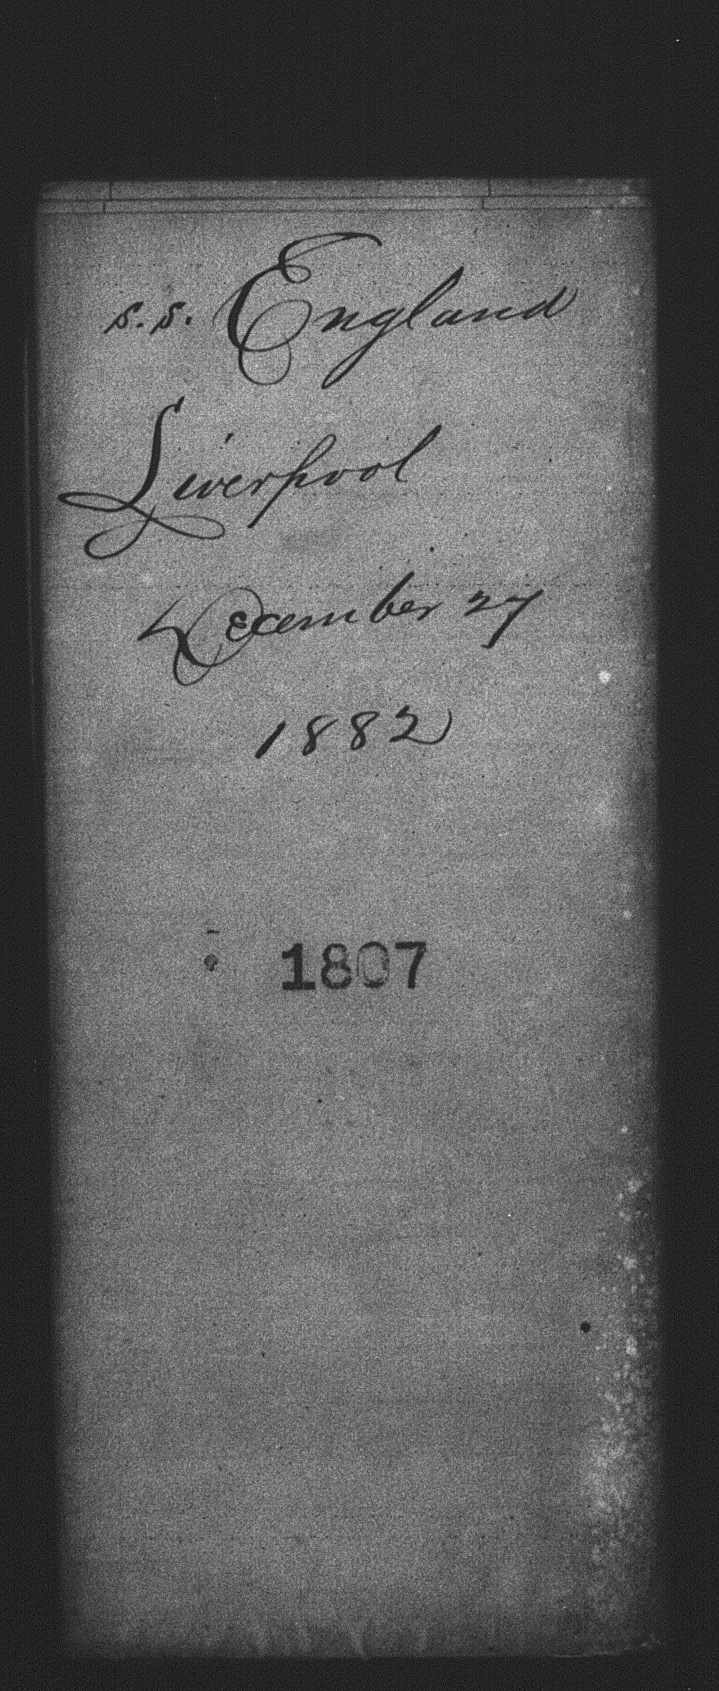 s.s. England
Liverpool
December 27
1882
1807